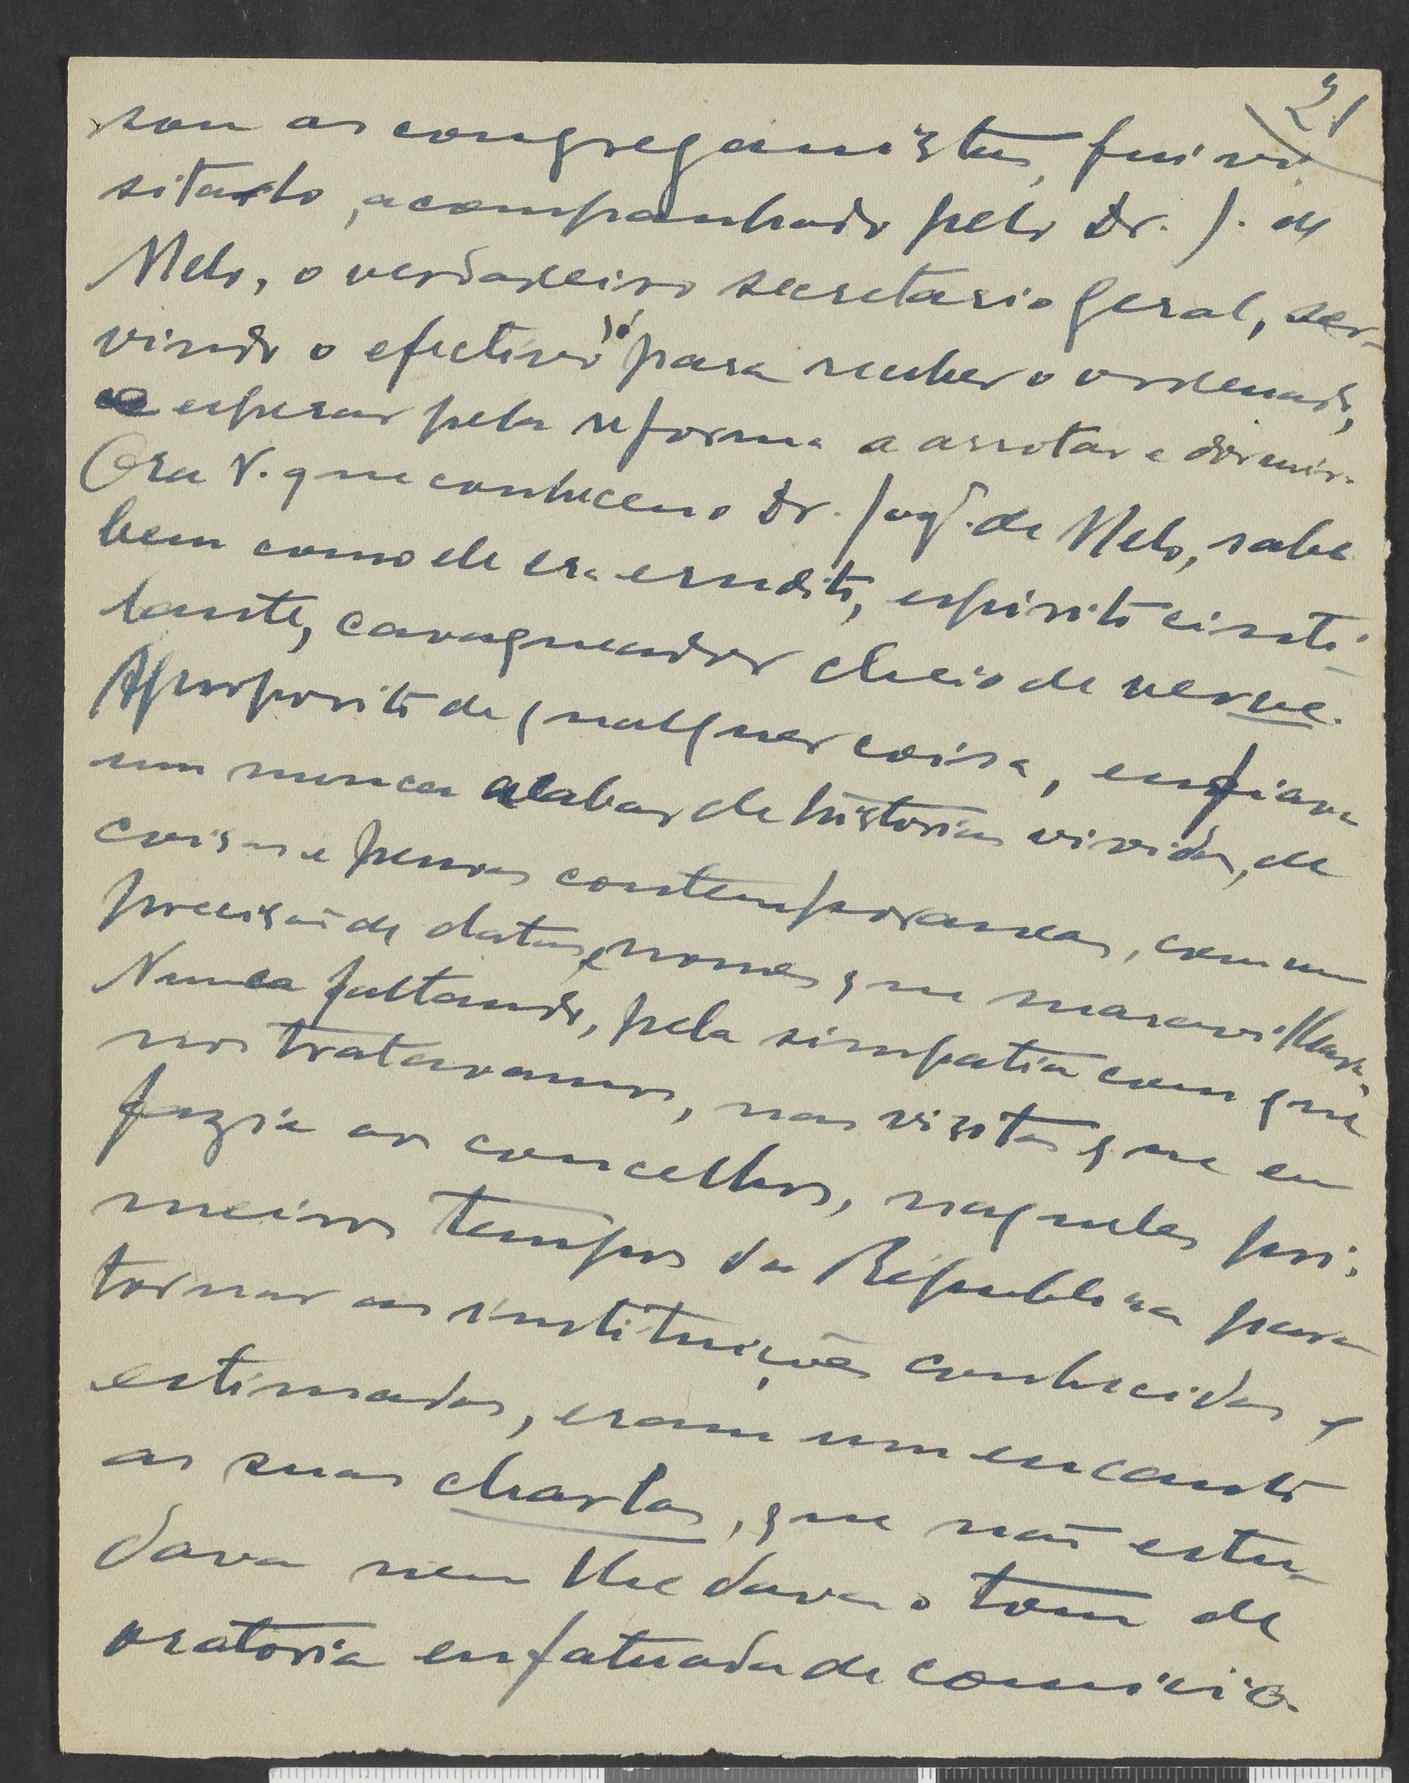 21
sou as congreganistas, fui vi-
sitado, acompanhado pelo Dr. J. de
Melo, o verdadeiro secretario geral, ser-
vindo o efectivo só para receber o ordenado,
e esperar pela reforma a arrotar e dormir.
Ora V. que conheceu o Dr. Joaqm. de Melo, sabe
bem como ele era erudito, espirito cinti-
lante, cavaqueador cheio de verve.
Aproposito de qualquer coisa, enfiava
um nunca acabar de historias vividas, de
coisas e pessoas contemporaneas, com uma
precisão de datas e nomes que maravilhava.
Nunca faltando, pela simpatia com que
nos tratavamos, nas visitas que eu
fazia aos concelhos, naqueles pri-
meiros tempos da Republica para
tornar as instituições conhecidas e
estimadas, eram um encanto
as suas charlas, que não estu-
dava nem lhe dava o tom de
oratoria enfatuada de comicio.